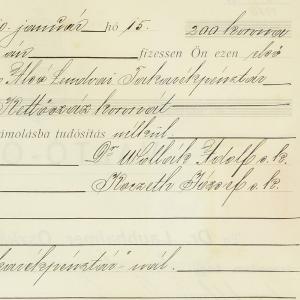 januar hó 15. 200 korona
án fizessen Ön ezen első
Alsó Lendvai Takarékpénztár
Kettőszáz koronát
számolásba tudósitás nélkül.
Dr Wollák Adolf s. k.
Koczeth József s. k.
takarékpénztár"-nál.